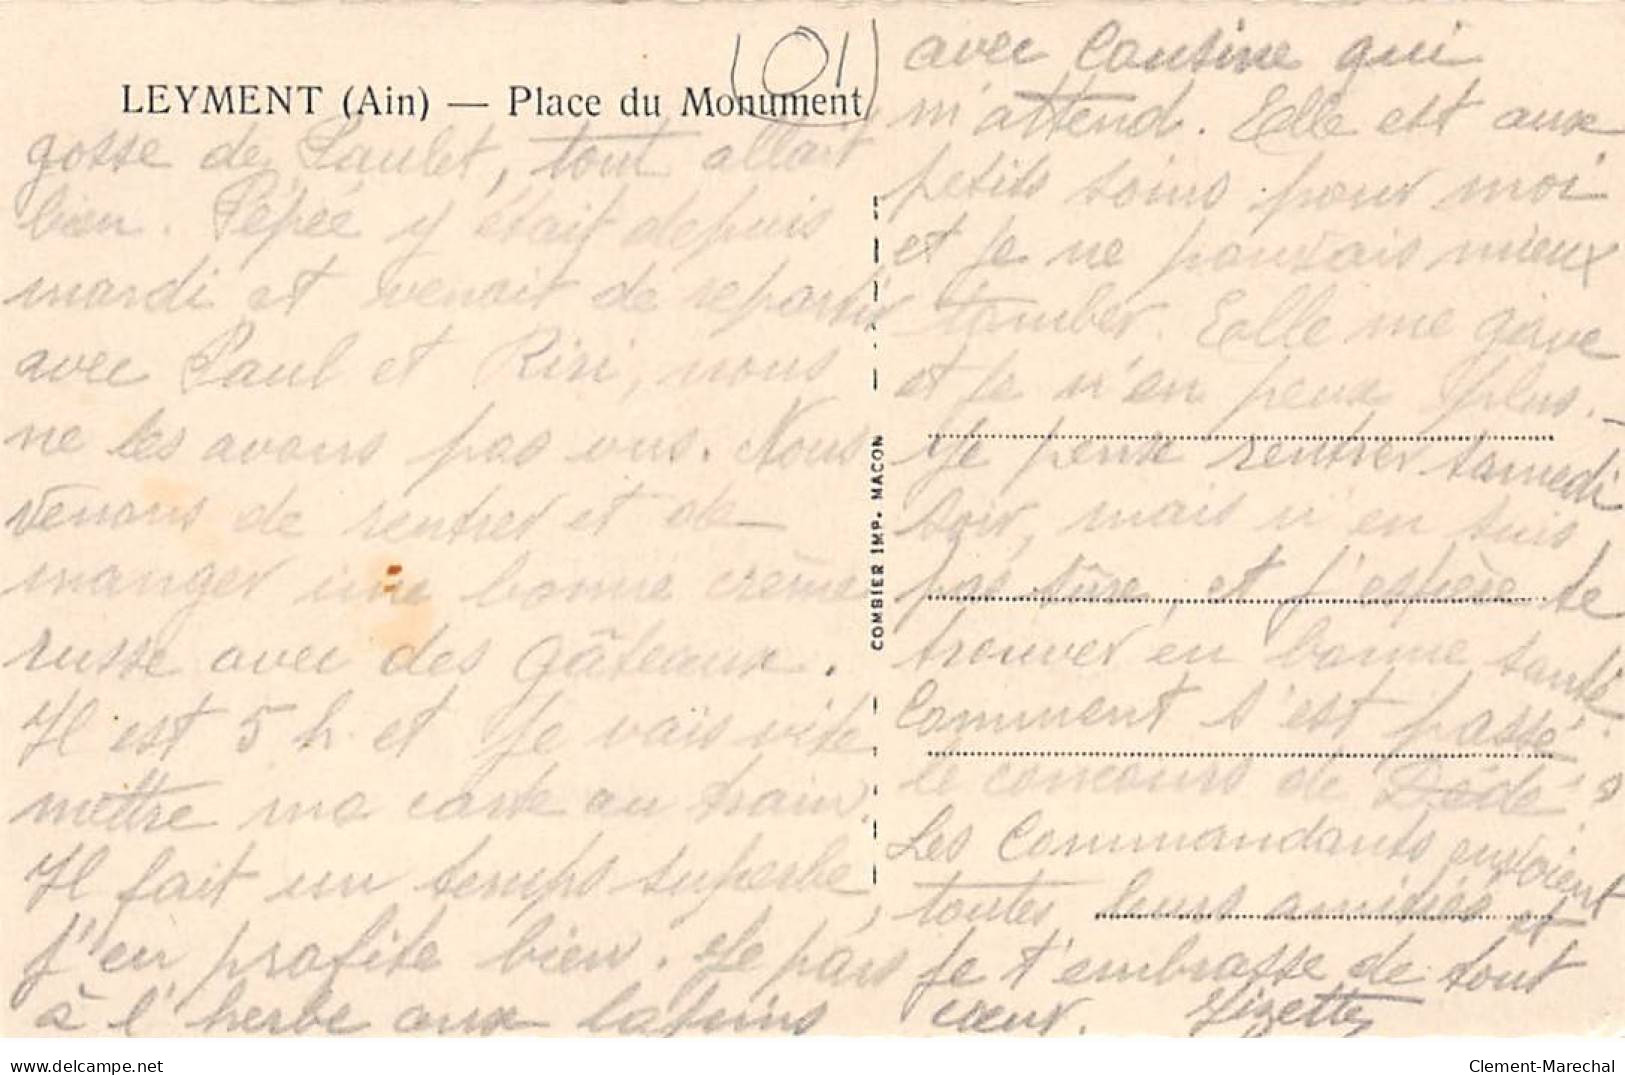 (01)
LEYMENT (Ain) — Place du Monument
gosse de Paulet, tout allait
bien. Pépée y était depuis
mardi et venait de repartir
avec Paul et Riri, nous
ne les avons pas vus. Nous
venons de rentrer et de
manger une bonne crème
russe avec des gâteaux.
Il est 5 h. et je vais vite
mettre ma carte au train.
Il fait un temps superbe,
j'en profite bien. Je pars
à l'herbe aux lapins
COMBIER IMP. MACON
avec Cousine qui
m'attend. Elle est aux
petits soins pour moi
et je ne pouvais mieux
tomber. Elle me gave
et je n'en peux plus.
Je pense rentrer samedi
soir, mais n'en suis
pas sûre, et j'espère te
trouver en bonne santé.
Comment s'est passé
le concours de Dédé ?
Les Commandants envoient
toutes leurs amitiés et
je t'embrasse de tout
cœur. Lizette
delcampe.net
Clement-Marechal